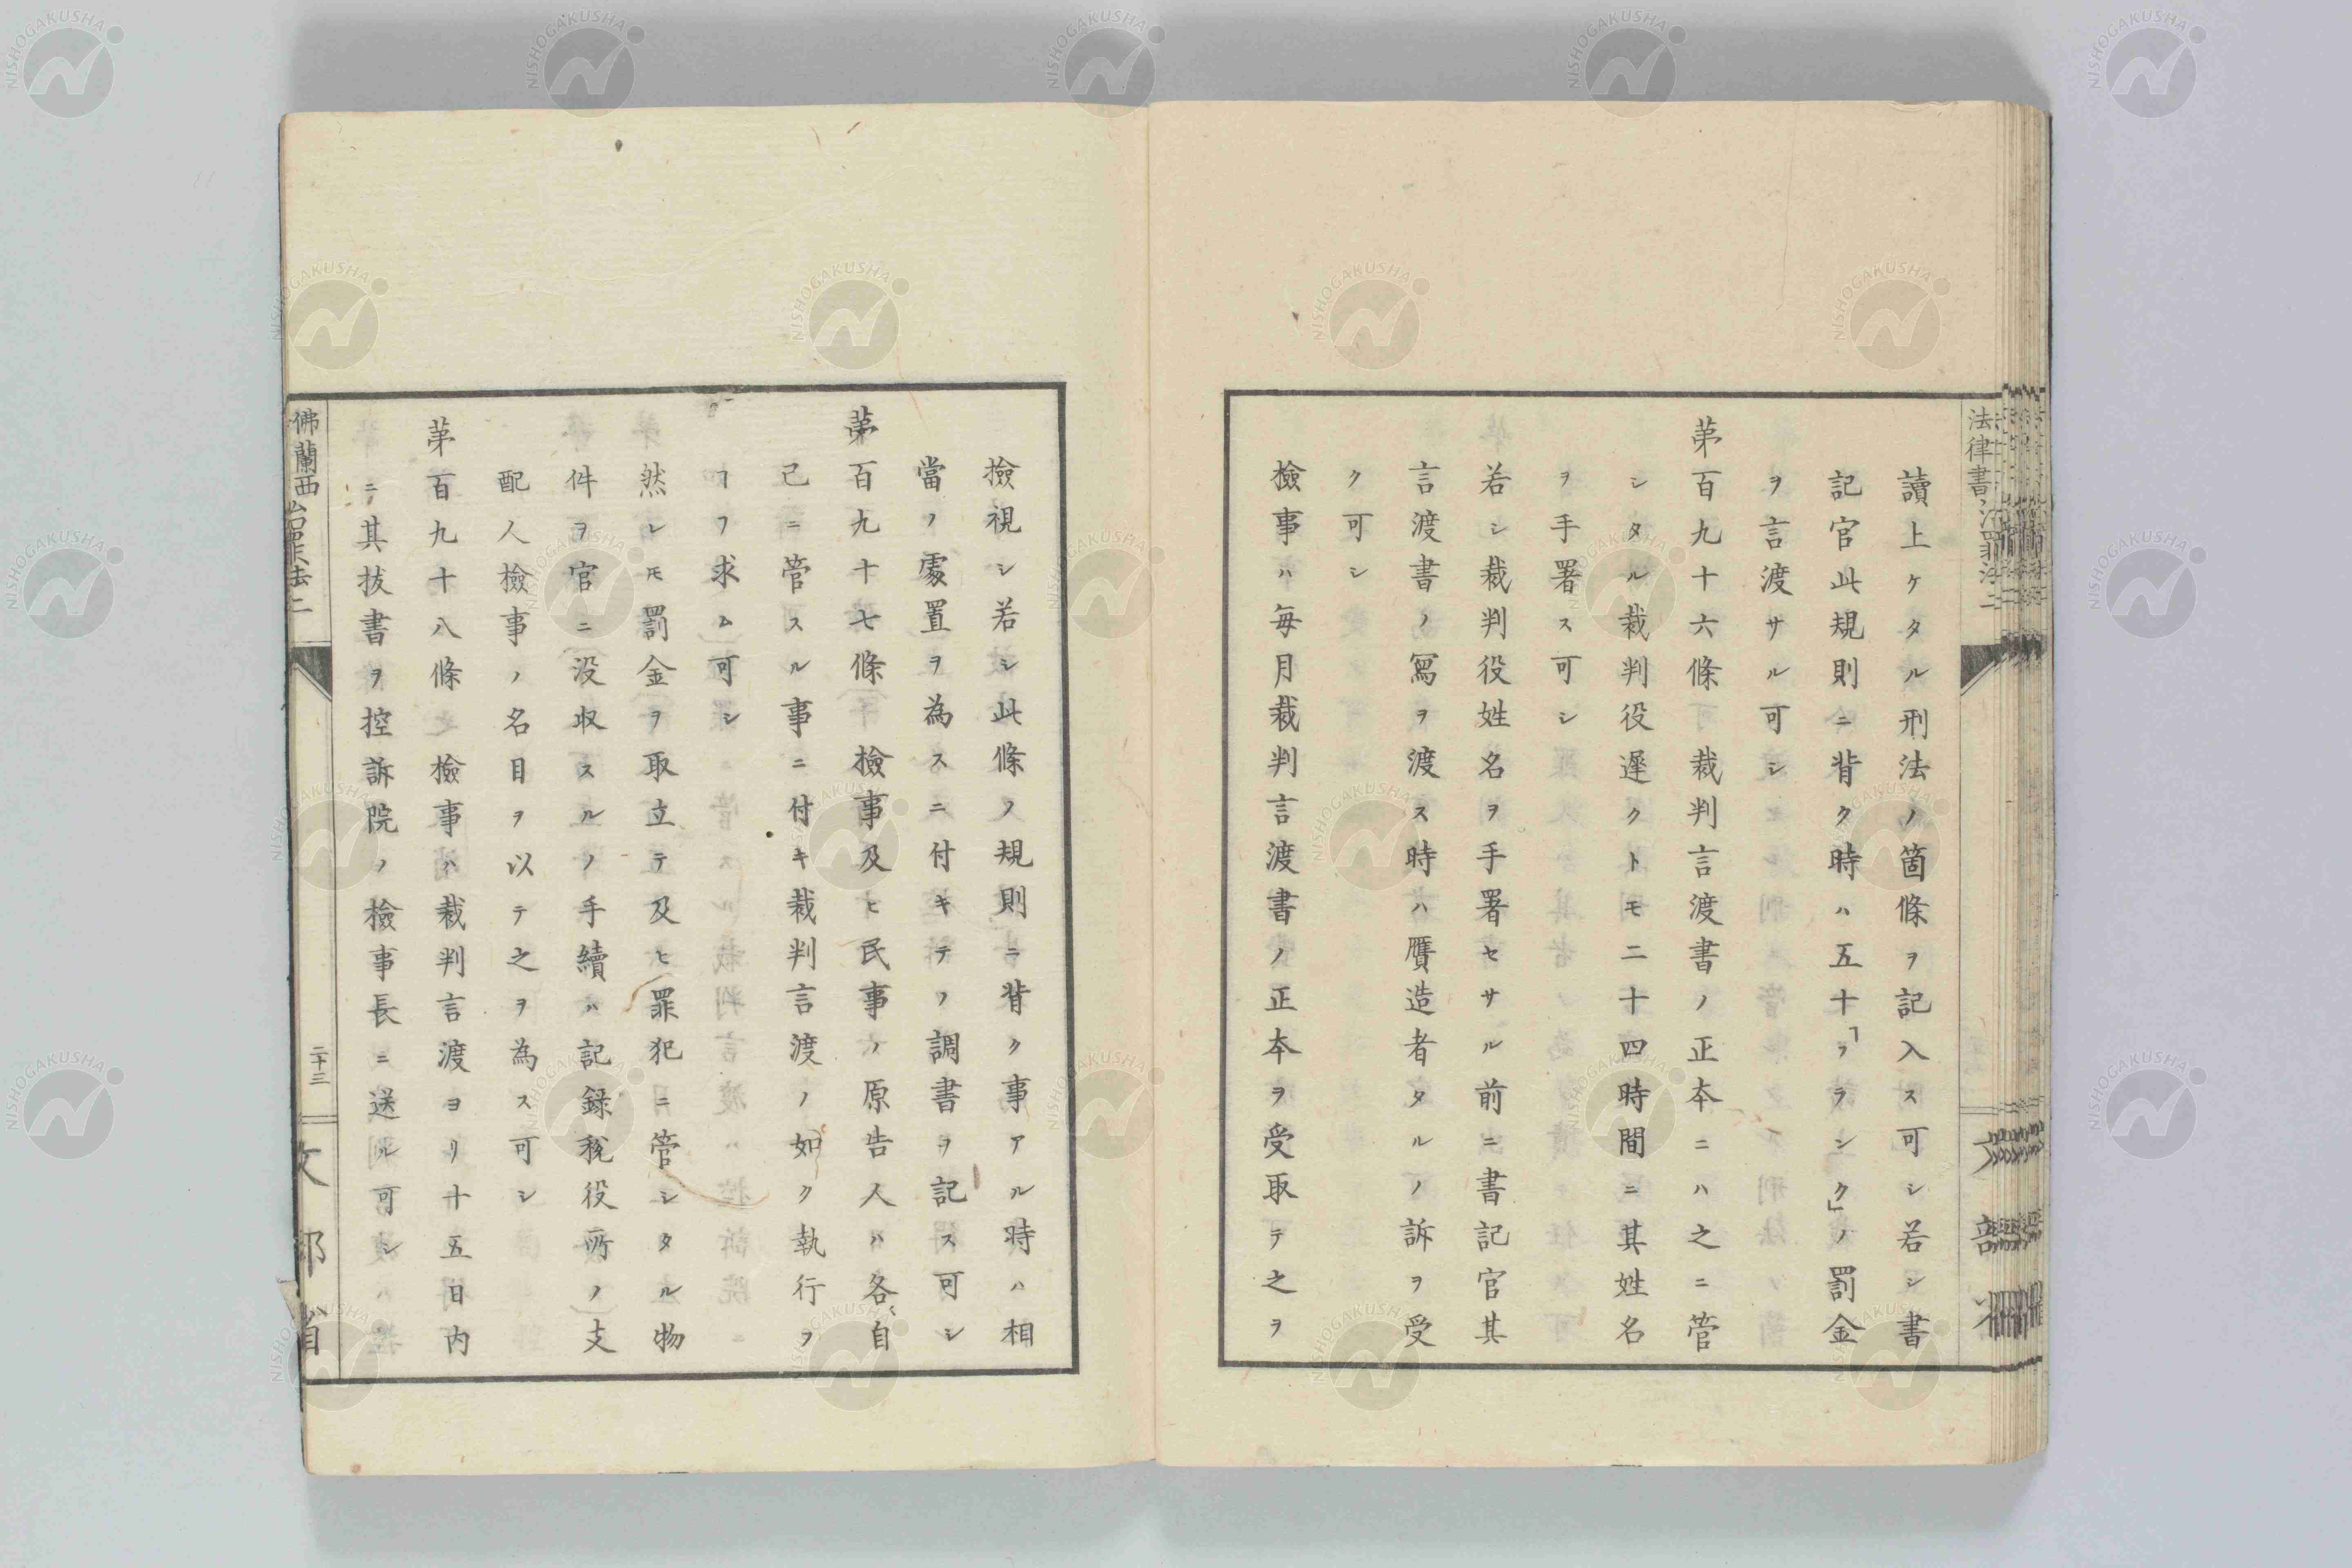 讀上ケタル刑法ノ箇條ヲ記入ス可シ若シ書
記官此規則ニ背ク時ハ五十「フランク」ノ罰金
ヲ言渡サル可シ
第百九十六條 裁判言渡書ノ正本ニハ之ニ管
シタル裁判役遲クトモ二十四時間ニ其姓名
ヲ手署ス可シ
若シ裁判役姓名ヲ手署セサル前ニ書記官其
言渡書ノ寫ヲ渡ス時ハ贋造者タルノ訴ヲ受
ク可シ
檢事ハ毎月裁判言渡書ノ正本ヲ受取テ之ヲ
檢視シ若シ此條ノ規則ニ背ク事アル時ハ相
當ノ處置ヲ為スニ付キテノ調書ヲ記ス可シ
第百九十七條 檢事及ヒ民事ノ原告人ハ各自
己ニ管スル事ニ付キ裁判言渡ノ如ク執行ヲ
ヿヲ求ム可シ
然シ𪜈罰金ヲ取立テ及ヒ罪犯ニ管シタル物
件ヲ官ニ没収スルノ手續ハ記録税役所ノ支
配人檢事ノ名目ヲ以テ之ヲ為ス可シ
第百九十八條 檢事ハ裁判言渡ヨリ十五日内
ニ其抜書ヲ控訴院ノ檢事長ニ送ル可シ
佛蘭西治罪法二
二十三
文部省